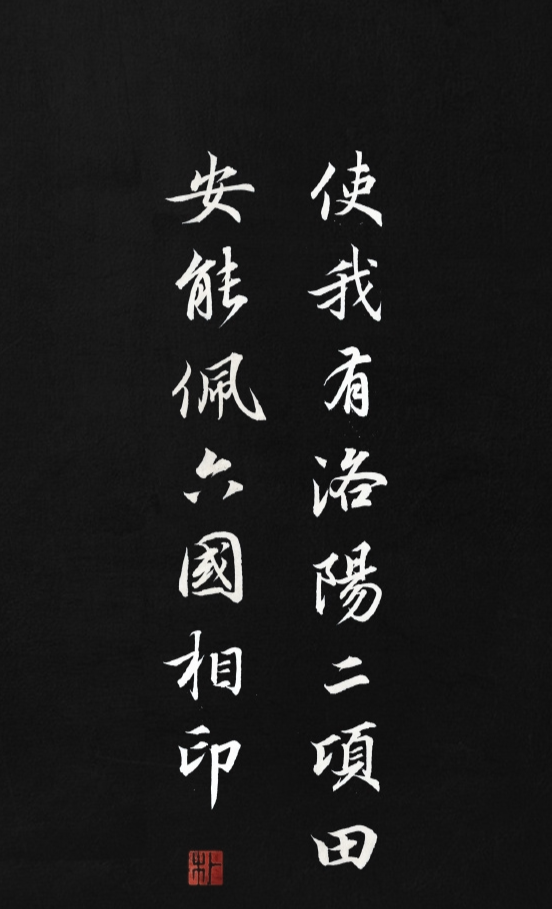 使我有洛陽二頃田
安能佩六國相印